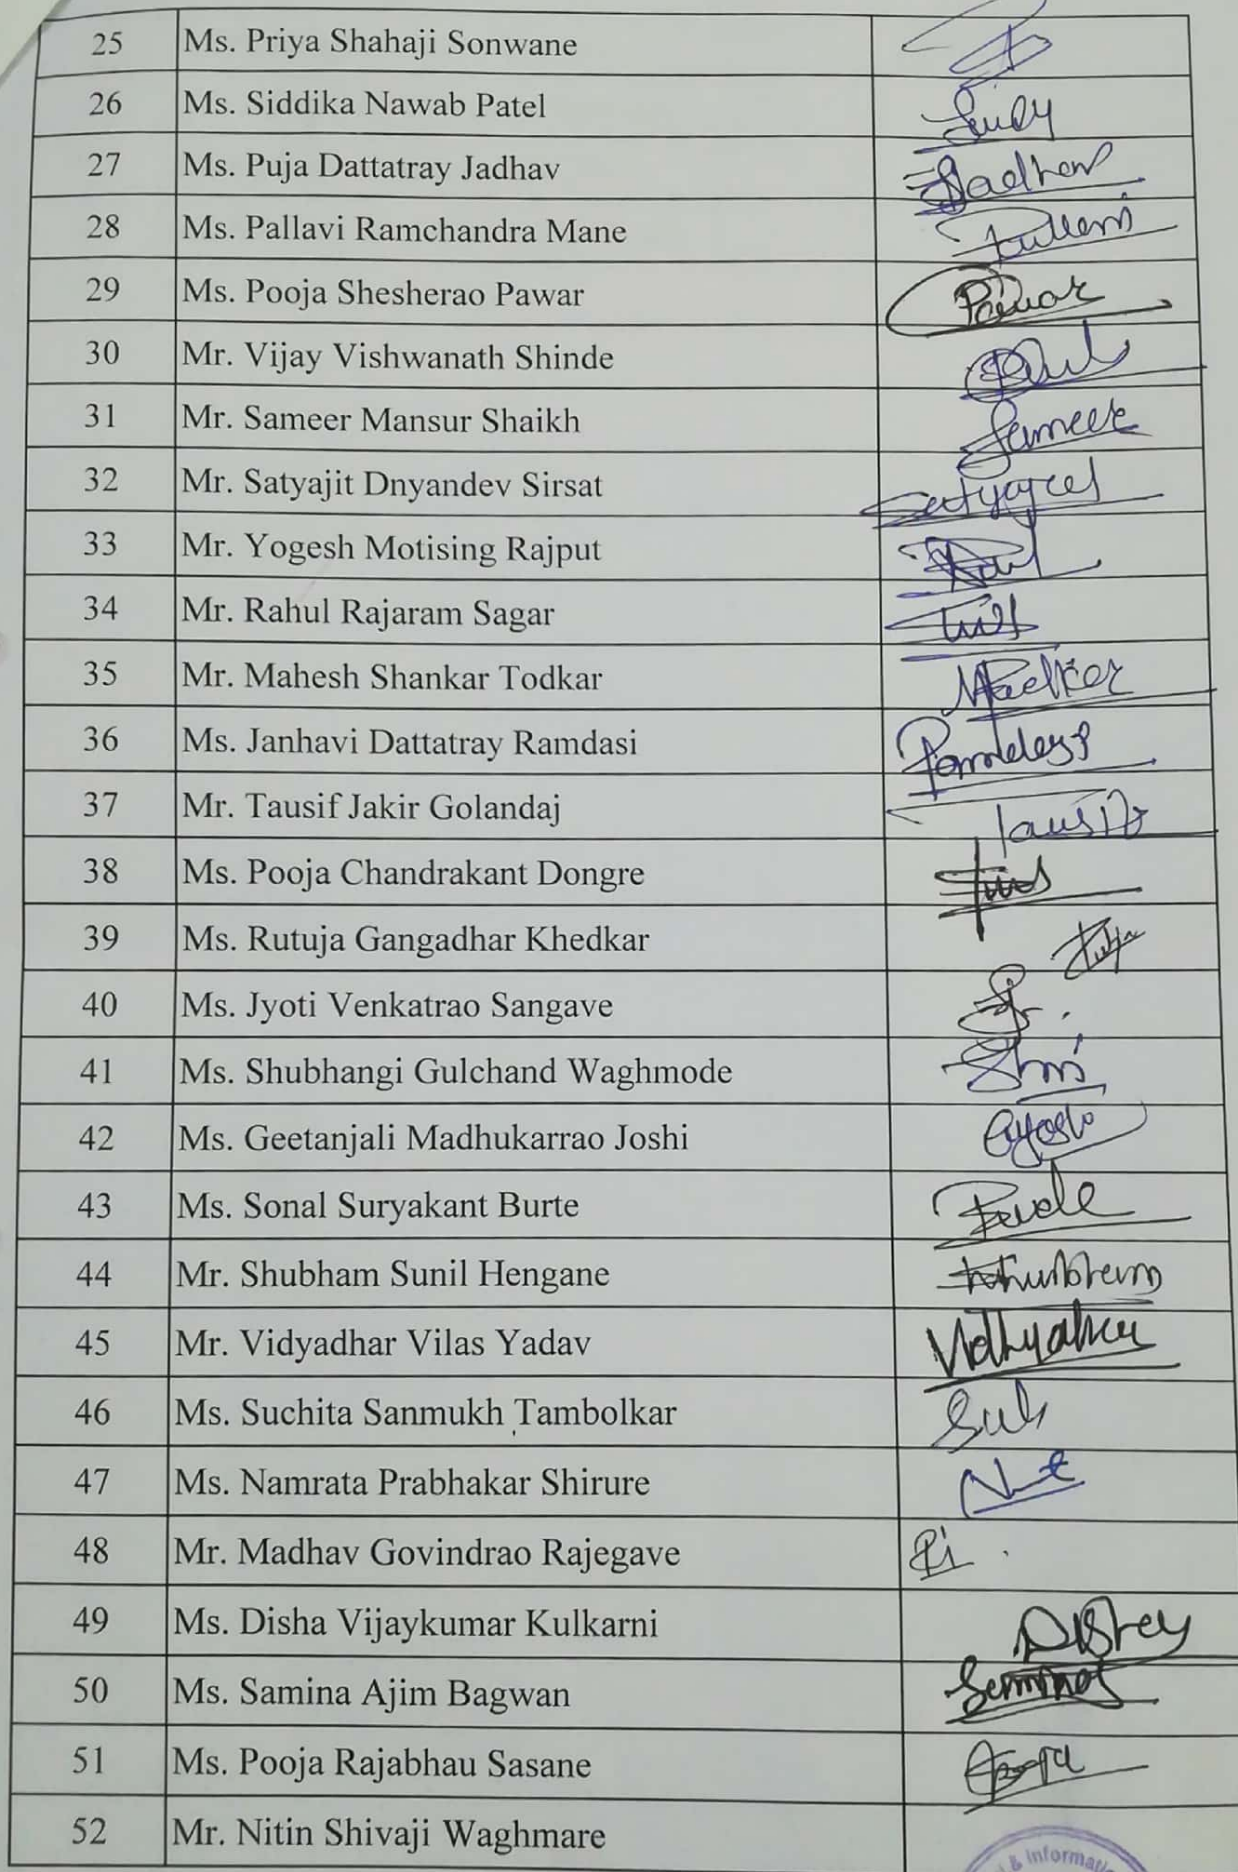 25 Ms. Priya Shahaji Sonwane
26 Ms. Siddika Nawab Patel
27 Ms. Puja Dattatray Jadhav Jadhav
28 Ms. Pallavi Ramchandra Mane
29 Ms. Pooja Shesherao Pawar Pawar
30 Mr. Vijay Vishwanath Shinde
31 Mr. Sameer Mansur Shaikh Sameer
32 Mr. Satyajit Dnyandev Sirsat
33 Mr. Yogesh Motising Rajput
34 Mr. Rahul Rajaram Sagar
35 Mr. Mahesh Shankar Todkar
36 Ms. Janhavi Dattatray Ramdasi
37 Mr. Tausif Jakir Golandaj
38 Ms. Pooja Chandrakant Dongre
39 Ms. Rutuja Gangadhar Khedkar
40 Ms. Jyoti Venkatrao Sangave
41 Ms. Shubhangi Gulchand Waghmode
42 Ms. Geetanjali Madhukarrao Joshi
43 Ms. Sonal Suryakant Burte
44 Mr. Shubham Sunil Hengane
45 Mr. Vidyadhar Vilas Yadav
46 Ms. Suchita Sanmukh Tambolkar
47 Ms. Namrata Prabhakar Shirure
48 Mr. Madhav Govindrao Rajegave
49 Ms. Disha Vijaykumar Kulkarni
50 Ms. Samina Ajim Bagwan
51 Ms. Pooja Rajabhau Sasane
52 Mr. Nitin Shivaji Waghmare
& Informa